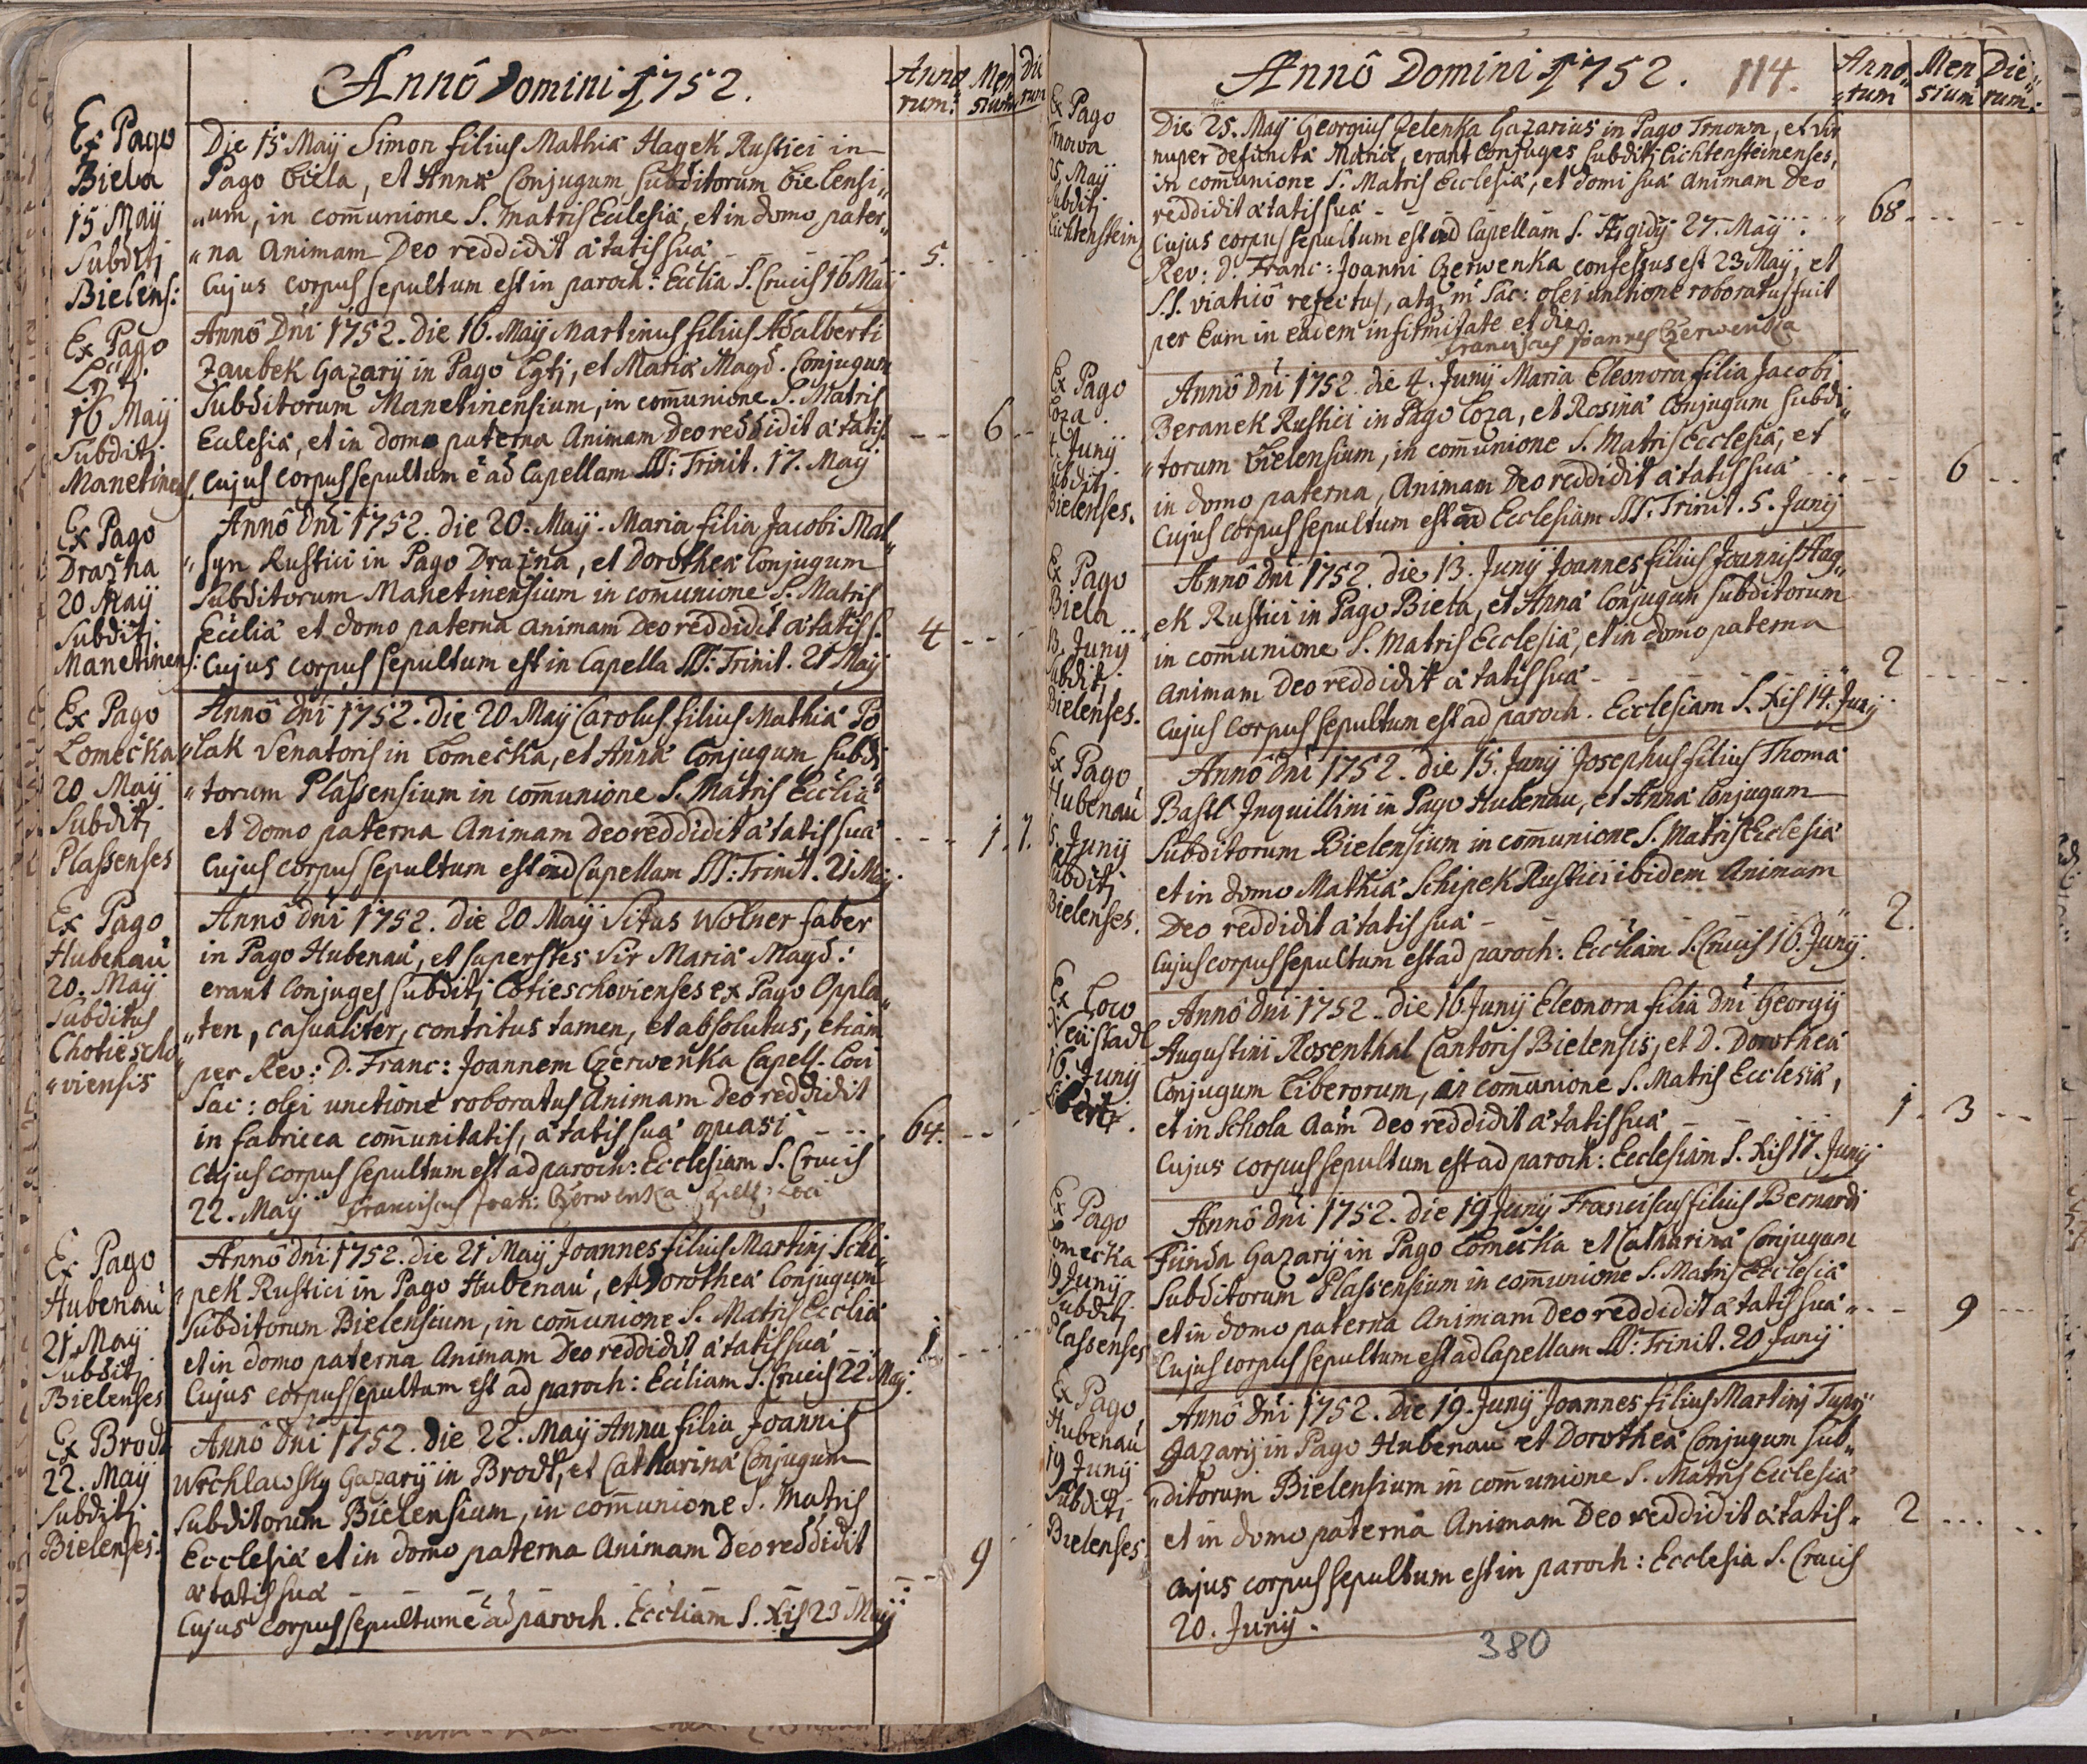 Annô Domini 1752.
Anno„
rum.
Men
sium
Die
rum
Ex Pago
Biela
15 Maij
Subditj
Bielens:
Die 15 Maij Simon filius Mathiæ Hagek Rustici in
Pago Biela, et Annæ Conjugum Subditorum Bielensi„
„um, in com̃unione S. Matris Ecclesiæ, et in domo pater„
„na Animam Deo reddidit ætatis suæ
5.
Cujus corpus sepultum est in paroch: Ecclia S. Crucis 16 Maij
Ex Pago
Lgtj.
16 Maij
Subditj
Manetinens.
Annô Dni 1752. die 16. Maij Martinus filius Adalberti
Zaubek Gazarij in Pago Lgtj, et Mariæ Magd. Conjugum
Subditorum Manetinensium, in com̃unione S. Matris
Ecclesiæ, et in domo paterna Animam Deo reddidit ætatis
6
Cujus corpus sepultum ẽ ad Capellam SS: Trinit. 17. Maij
Ex Pago
Dražna
20 Maij
Subditj
Manetinens:
Annô Dni 1752. die 20. Maij. Maria filia Jacobi Mal„
„syn Rustici in Pago Dražna, et Dorotheæ Conjugum
Subditorum Manetinensium in com̃unione S. Matris
Eccliæ et domo paterna animam Deo reddidit ætatis S.
4
Cujus corpus sepultum est in Capella SS: Trinit. 21 Maij
Ex Pago
Lomečka
20 Maij
Subditj
Plassenses
Annô Dni 1752. die 20 Maij Carolus filius Mathiæ Po„
„lak Senatoris in Lomečka, et Annæ Conjugum Subdi„
„torum Plassensium in com̃unione S. Matris Eccliæ
et domo paterna Animam Deo reddidit ætatis suæ
1. 1.
Cujus corpus sepultum est ad Capellam SS: Trinit. 21 Maij.
Ex Pago
Hubenau
20. Maij
Subditus
Chotiescho
„viensis
Annô dni 1752. die 20 Maij Vitus Wolner faber
in Pago Hubenau, et superstes Vir Mariæ Magd:
erant Conjuges subditj Cotieschovienses ex Pago Oppla„
„ten, casualiter, contritus tamen, et absolutus, etiam
per Rev: D. Franc: Joannem Czerwenka Capell. Loci
Sac: olei unctione roboratus Animam Deo reddidit
in fabricca com̃unitatis, ætatis suæ quasi
64.
Cujus corpus sepultum est ad paroch: Ecclesiam S. Crucis
22. Maij Franciscus Joan: Czerwenka Capell: Loci
Ex Pago
Hubenau
21 Maij
Subditj
Bielenses
Annô dni 1752. die 21 Maij Joannes filius Martinj Schi„
„pek Rustici in Pago Hubenau, et Dorotheæ Conjugum
Subditorum Bielensium, in com̃unione S. Matris Eccliæ
et in domo paterna Animam Deo reddidit ætatis suæ
1
Cujus corpus sepultum est ad paroch: Eccliam S. Crucis 22. Maij.
Ex Brodt
22. Maij
Subditj
Bielenses.
Annô Dni 1752. die 22. Maij Anna filia Joannis
Wrchlawsky Gazarij in Brodt, et Catharinæ Conjugum
Subditorum Bielensium, in com̃unione S. Matris
Ecclesiæ et in domo paterna Animam Deo reddidit
ætatis suæ
9
Cujus corpus sepultum ẽ ad paroch. Eccliam S. Xis 23 Maij
Annô Domini 1752. 114.
Anno„
„rum
Men
sium
Die„
rum.
Ex Pago
Trnowa
25. Maij
Subditj
Lichtenstein
Die 25. Maij Georgius Zelenka Gazarius in Pago Trnowa, et vir
nuper defunctæ Mariæ, erant Conjuges subditj Lichtensteinenses,
in com̃unione S. Matris Ecclesiæ, et domi suæ animam Deo
reddidit ætatis suæ
68
Cujus corpus sepultum est ad Capellam S. Ægidij 27. Maij.
Rev: D. Franc: Joanni Czerwenka confessus est 23 Maij, et
S.S. viaticô refectus, atq; in Sac: olei unctione roboratus fuit
per Eum in eadem infirmitate et die
Franciscus Joannes Czerwenka
Ex Pago
Loza
4. Junij
Subditj
Bielenses.
Annô Dni 1752. die 4. Junij Maria Eleonora filia Jacobi
Beranek Rustici in Pago Loza, et Rosinæ Conjugum Subdi„
„torum Bielensium, in com̃unione S. Matris Ecclesiæ, et
in domo paterna, Animam Deo reddidit ætatis suæ
6
Cujus corpus sepultum est ad Ecclesiam SS: Trinit. 5. Junij
Ex Pago
Biela
13. Junij
Subditj
Bielenses.
Annô Dni 1752. die 13. Junij Joannes filius Joannis Hag„
ek Rustici in Pago Biela, et Annæ Conjugum Subditorum
in com̃unione S. Matris Ecclesiæ, et in domo paterna
Animam Deo reddidit ætatis suæ
2
Cujus corpus sepultum est ad paroch. Ecclesiam S. Xis 14. Junij
Ex Pago
Hubenau
15. Junij
Subditj
Bielenses.
Annô Dni 1752. die 15. Junij Josephus filius Thomæ
Bastl Inquillini in Pago Hubenau, et Annæ Conjugum
Subditorum Bielensium in com̃unione S. Matris Ecclesiæ
et in domo Mathiæ Schipek Rustici ibidem Animam
Deo reddidit ætatis suæ
2.
Cujus corpus sepultum est ad paroch: Eccliam S. Crucis 16. Junij.
Ex Loco
Neustadl
16. Junij
Annô Dni 1752. die 16 Junij Eleonora filia Dni Georgij
Augustini Rosenthal Cantoris Bielensis, et D. Dorotheæ
Conjugum Liberorum, in com̃unione S. Matris Ecclesiæ,
et in Schola Aam Deo reddidit ætatis suæ
1. 3
Cujus corpus sepultum est ad paroch: Ecclesiam S. Xis 17. Junij
Ex Pago
Lomečka
19 Junij
Subditj
Plassenses
Annô Dni 1752. die 19 Junij Franciscus filius Bernardi
Funda Gazarij in Pago Lomečka et Catharinæ Conjugum
Subditorum Plassensium in com̃unione S. Matris Ecclesiæ
et in domo paterna Animam Deo reddidit ætatis suæ
9
Cujus corpus sepultum est ad Capellam SS: Trinit. 20 Junij
Ex Pago
Hubenau
19 Junij
Subditj
Bielenses
Annô Dni 1752. Die 19. Junij Joannes filius Martinj Tupy
Gazarij in Pago Hubenau et Dorotheæ Conjugum Sub„
„ditorum Bielensium in com̃unione S. Matris Ecclesiæ
et in domo paterna Animam Deo reddidit ætatis„
2
cujus corpus sepultum est in paroch: Ecclesia S. Crucis
20. Junij.
380